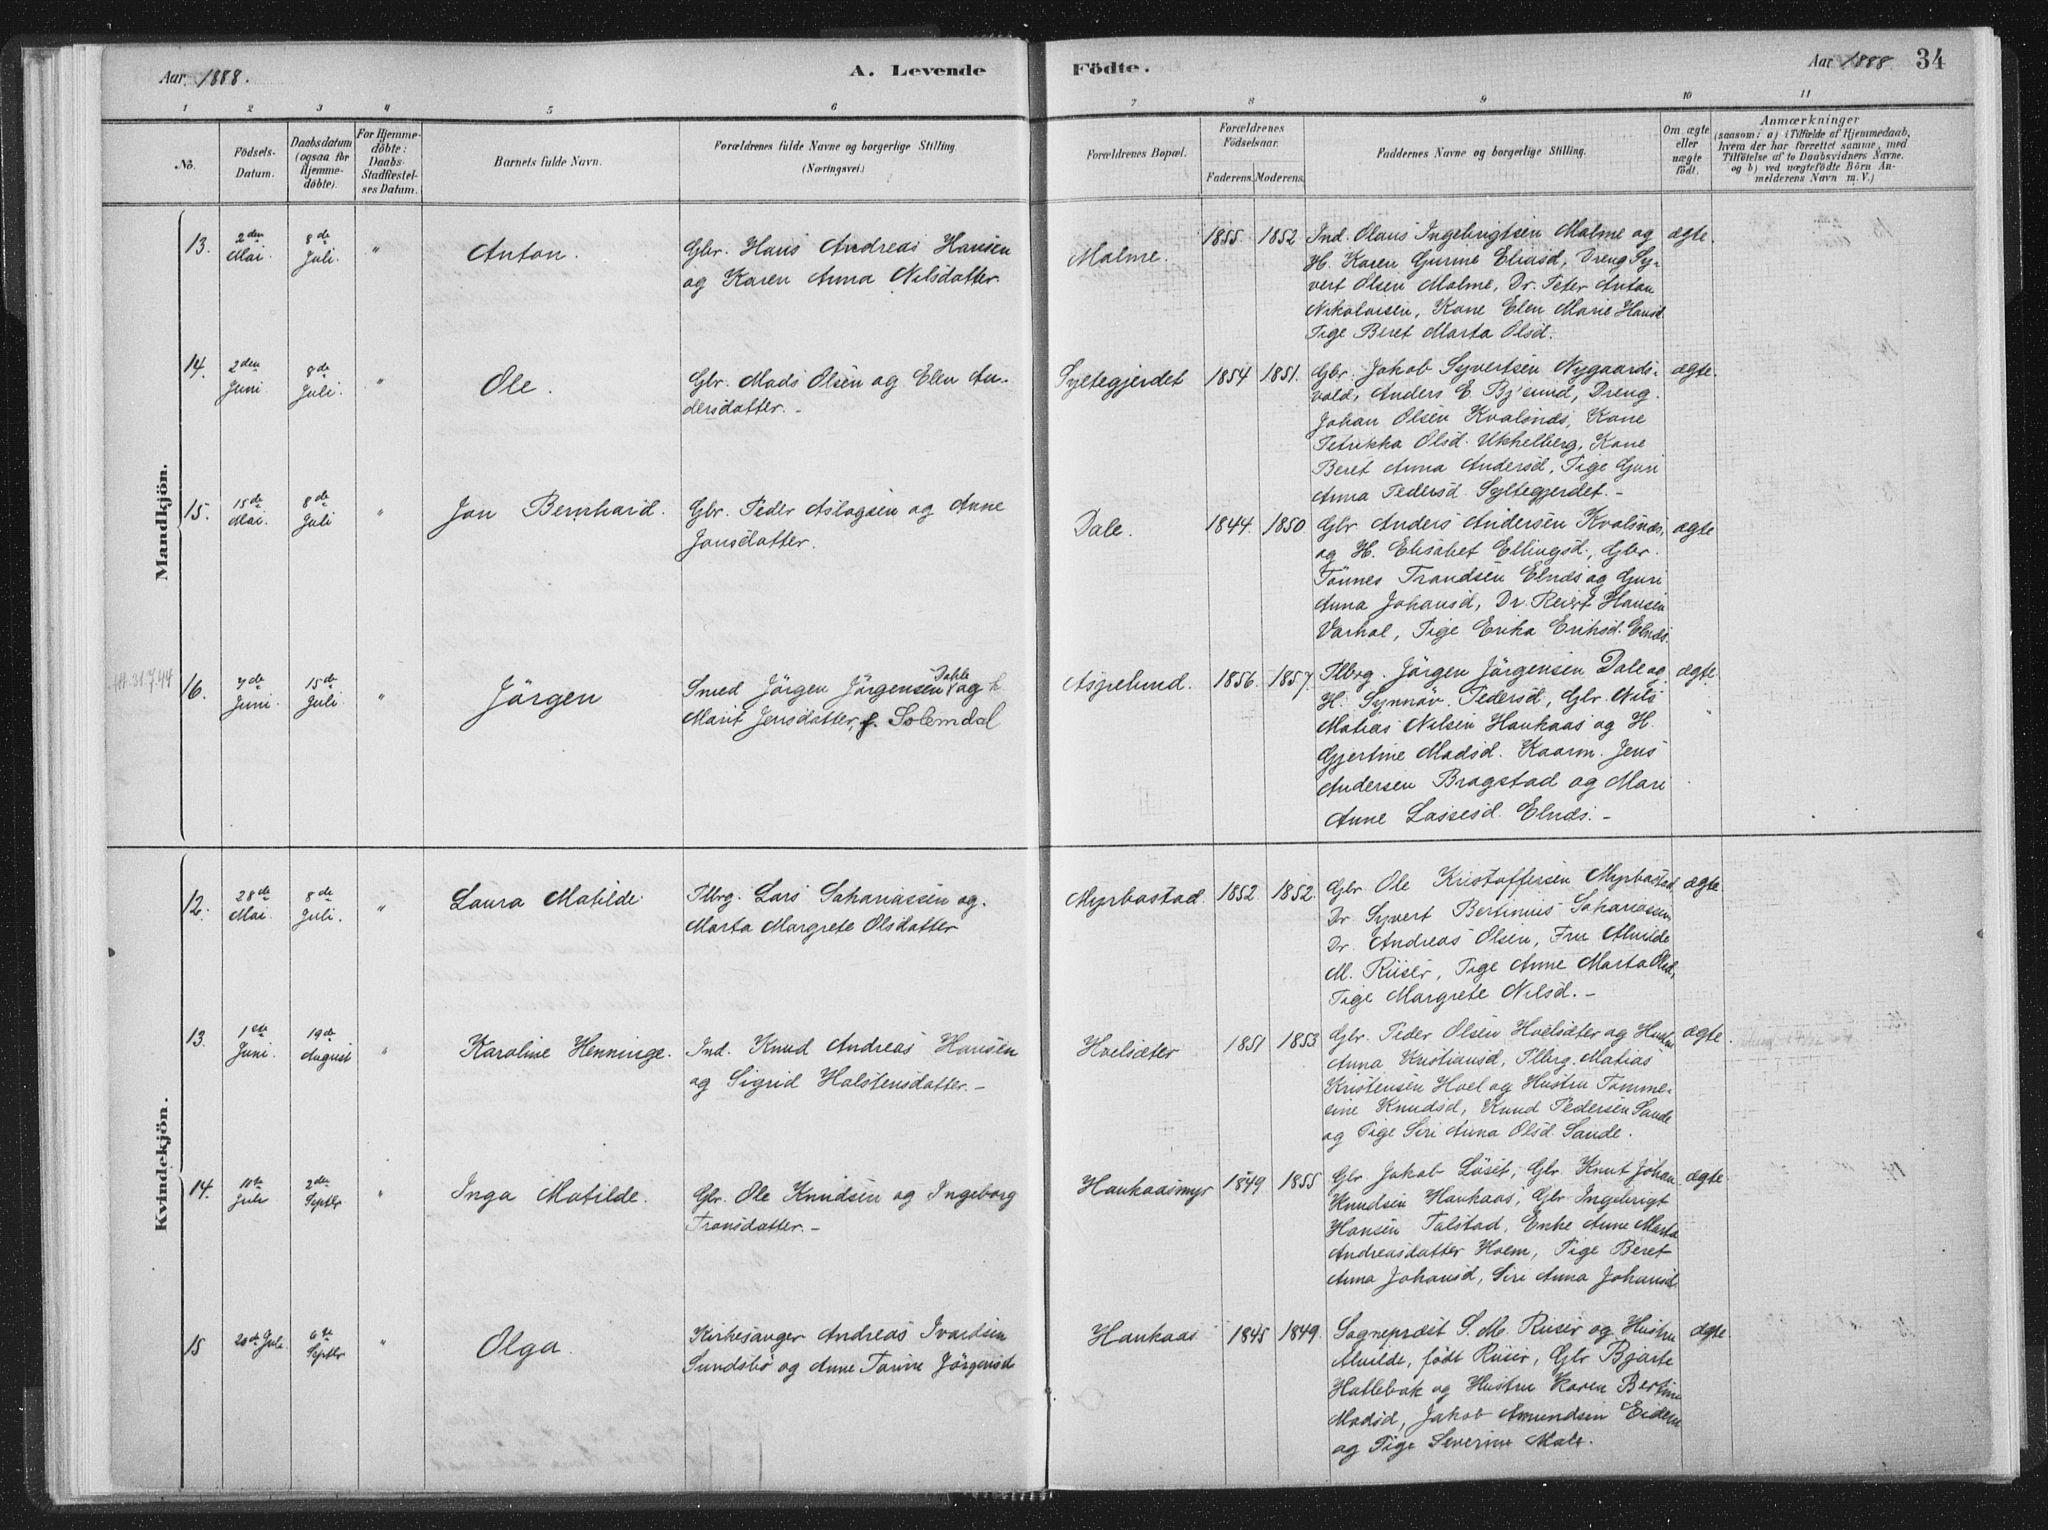 Aar 1888.
A. Levende
Födte.
Aar 1888. 34
1 2 3 4 5 6 7 8 9 10 11
No.
Födsels-
Datum.
Daabsdatum
(ogsaa for
Hjemme-
döbte).
For Hjemme-
döbte:
Daabs-
Stadfæstel-
ses Datum.
Barnets fulde Navn.
Forældrenes fulde Navne og borgerlige Stilling
(Næringsvei.)
Forældrenes Bopæl.
Forældrenes
Födselsaar.
Faderens. Moderens.
Faddernes Navne og borgerlige Stilling.
Om ægte
eller
uægte
födt.
Anmærkninger
(saasom: a) i Tilfælde af Hjemmedaab,
hvem der har forrettet samme, med
Tilföielse af to Daabsvidners Navne.
og b) ved uægtefödte Börn An-
melderens Navn m. V.)
Mandkjön.
13.
2den
Mai.
8de
Juli.
"
Anton.
Gbr. Hans Andreas Hansen
og Karen Anna Nilsdatter.
Malme.
1855. 1852.
Ind. Olaus Ingebrigtsen Malme og
H. Karen Gurine Eliasd, Dreng Sy-
vert Olsen Malme, Dr. Peter Anton
Nikolaisen, Kone Elen Marie Hansd
Pige Beret Marta Olsd.
ægte.
14.
2den
Juni.
8de
Juli.
"
Ole.
Gbr. Mads Olsen og Ellen An-
dersdatter. -
Syltegjerdet
1854 1851.
Gbr. Jakob Syvertsen Nygaards-
vold, Anders E. Bj'snud, Dreng
Johan Olsen Kvalsnes, Kone
Petrikka Olsd. Ukkelberg, Kone
Beret Anna Andersd, Pige Guri
Anna Pedersd. Syltegjerdet. -
ægte.
15.
15de
Mai.
8de
Juli
"
Jon Bernhard.
Gbr. Peder Aslagsen og Anne
Jonsdatter.
Dale.
1844. 1850.
Gbr Anders Andersen Kvalsnes,
og H. Elisabet Ellingsd, Gbr.
Tönnes Trandsen Elnes og Guri
Anna Johansd, Dr. Reiert Hansen
Varhol, Pige Erika Eriksd. Elnes.
ægte
31.7.44
16.
7de
Juni.
15de
Juli
"
Jörgen
Smed Jörgen Jörgensen Dahle og h
Marit Jensdatter, f. Solemdal
Asprelund.
1856. 1857.
Plbrg. Jörgen Jörgensen Dale og
H. Synnöv. Pedersd, Gbr. Nils
Matias Nilsen Haukaas og H.
Gjertine Madsd. Kaarm. Jens
Andersen Bragstad og Mari
Anne Lassesd. Elnes. -
ægte.
Kvindekjön.
12.
28de
Mai.
8de
Juli.
"
Laura Matilde.
Plbrg. Lars Sakariassen og
Marta Margrete Olsdatter
Myrbostad.
1852. 1852.
Gbr Ole Kristoffersen Myrbostad
Dr. Syvert Bertinius Sakariassen
Dr. Andreas Olsen, Fru Alvilde
M. Riiser, Pige Anne Marta Olsd,
Pige Margrete Nilsd. -
ægte.
13.
1ste
Juni.
19de
August
"
Karoline Henninge.
Ind. Knud Andreas Hansen
og Sigrid Halstensdatter. -
Hoelsæter
1851 1853
Gbr. Peder Olsen Hoelsæter og Hustru
Anna Kristiansd, Plbrg. Matias
Kristensen Hoel og Hustru Tomme-
sine Knudsd, Knud Pedersen Sande
og Pige Siri Anna Olsd. Sande.
ægte.
14.
10de
Juli
2den
Septbr
"
Inga Matilde.
Gbr. Ole Knudsen og Ingeborg
Transdatter. -
Haukaasmyr
1849 1855
Gbr Jakob Löset, Gbr. Knut Johan
Knudsen Haukaas, Gbr Ingebrigt
Hansen Talstad, Enke Anne Marta
Andreasdatter Hoem, Pige Beret
Anna Johansd, Siri Anna Johansd
ægte
15
20de Juli
6te
Septbr
"
Olga.
Kirkesanger Andreas Ivardsen
Sundsbö og Anne Torine Jörgensd
Haukaas
1845 1849.
Sogneprest S. M. Riiser og Hustru
Alvilde, född Riiser, Gbr Bjarte
Hatlebak og Hustru Karen Bertine
Madsd, Jakob Amundsen Eidem
og Pige Severine Male.
ægte